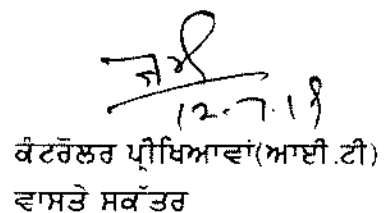 12.7.19
ਕੰਟਰੋਲਰ ਪ੍ਰੀਖਿਆਵਾਂ(ਆਈ.ਟੀ)
ਵਾਸਤੇ ਸਕੱਤਰ